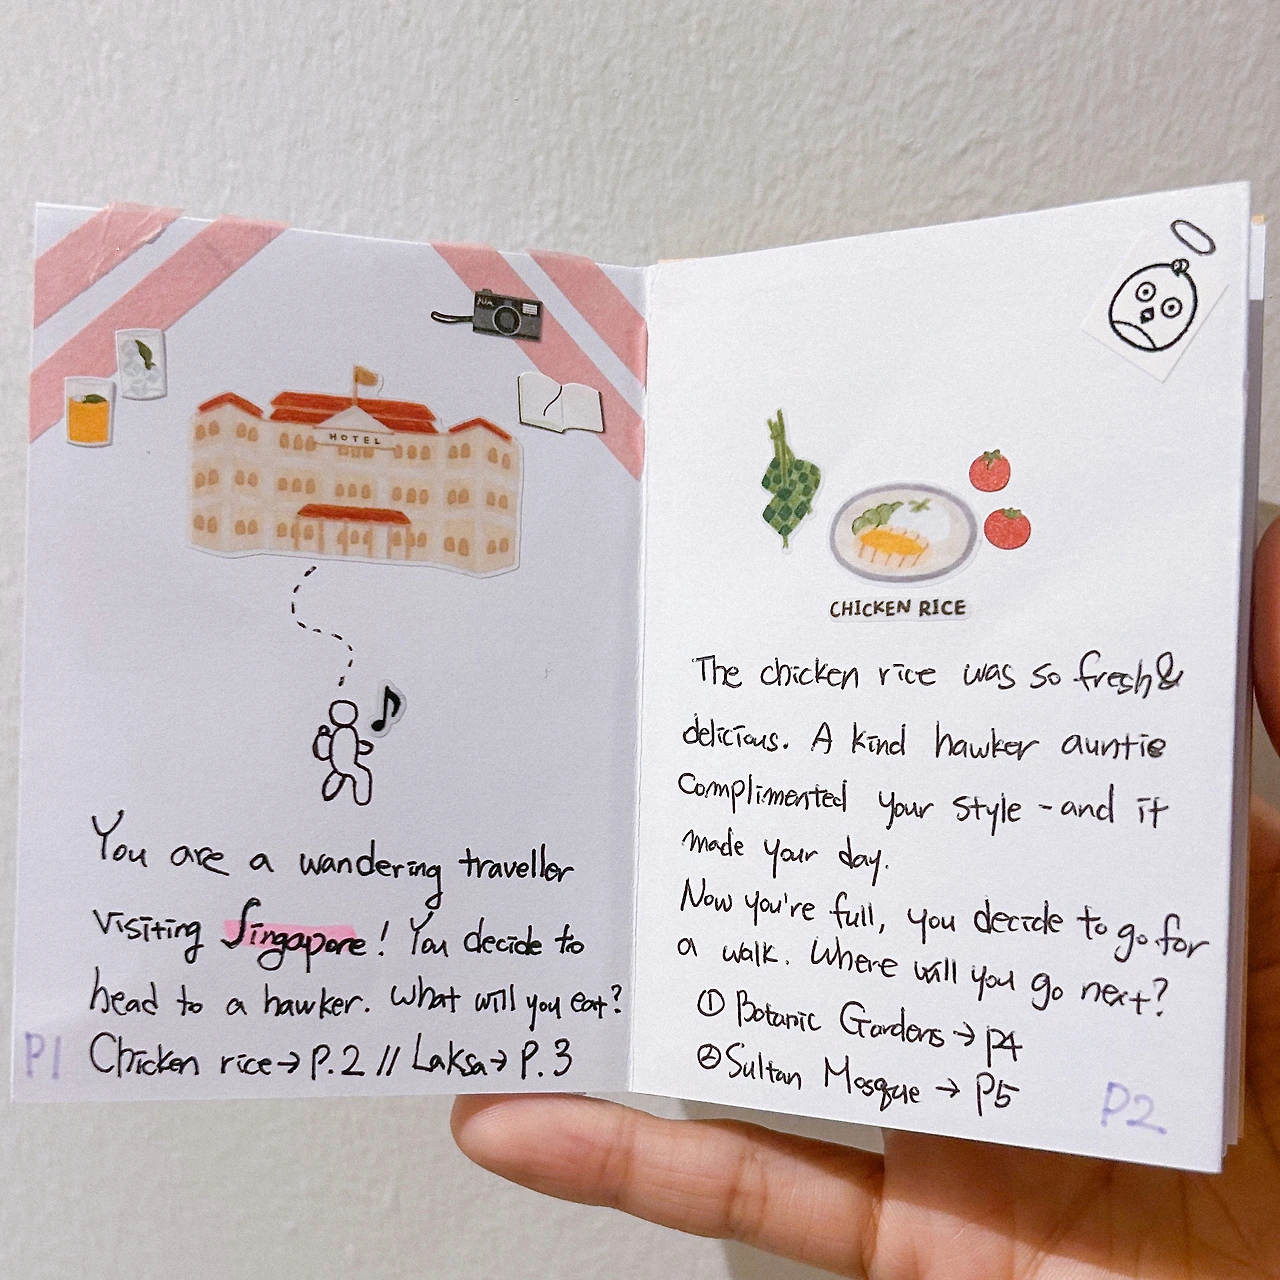 HOTEL
You are a wandering traveller
visiting Singapore! You decide to
head to a hawker. What will you eat?
Chicken rice → P.2 // Laksa → P.3
P1
CHICKEN RICE
The chicken rice was so fresh &
delicious. A kind hawker auntie
complimented your style - and it
made your day.
Now you're full, you decide to go for
a walk. Where will you go next?
① Botanic Gardens → P4
② Sultan Mosque → P5
P2